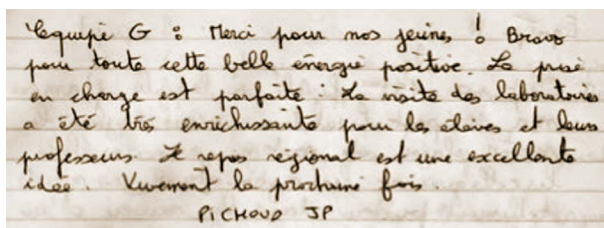 L'equipe G : Merci pour nos jeunes ! Bravo
pour toute cette belle énergie positive. La prise
en charge est parfaite : La visite des laboratoires
a été très enrichissante pour les élèves et leurs
professeurs. Le repas régional est une excellente
idée. Vivement la prochaine fois.
PICHOUD JP